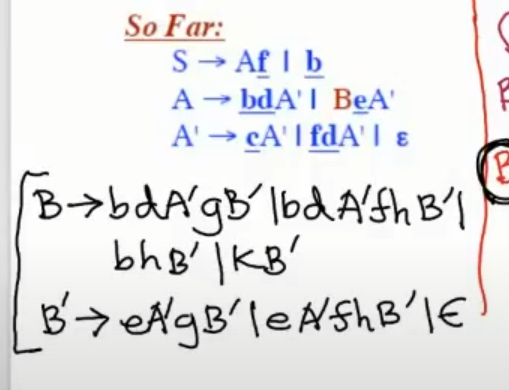 So Far:
S → Af | b
A → bdA' | BeA'
A' → cA' | fdA' | ε
B→bdA'gB'|bdA'fhB'|
bhB'|KB'
B'→eA'gB'|eA'fhB'|ε
B